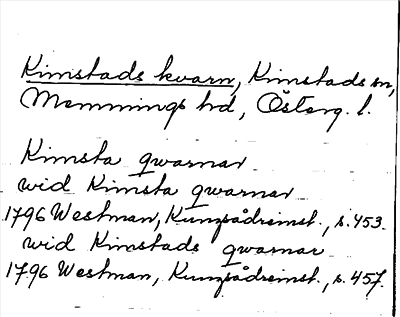 Kimstads kvarn, Kimstads sn,
Memmings hd, Österg. l.
Kimsta qwarnar
wid Kimsta qwarnar
1796 Westman, Kungsådreinst., s. 453.
wid Kimstads qwarnar
1796 Westman, Kungsådreinst., s. 457.